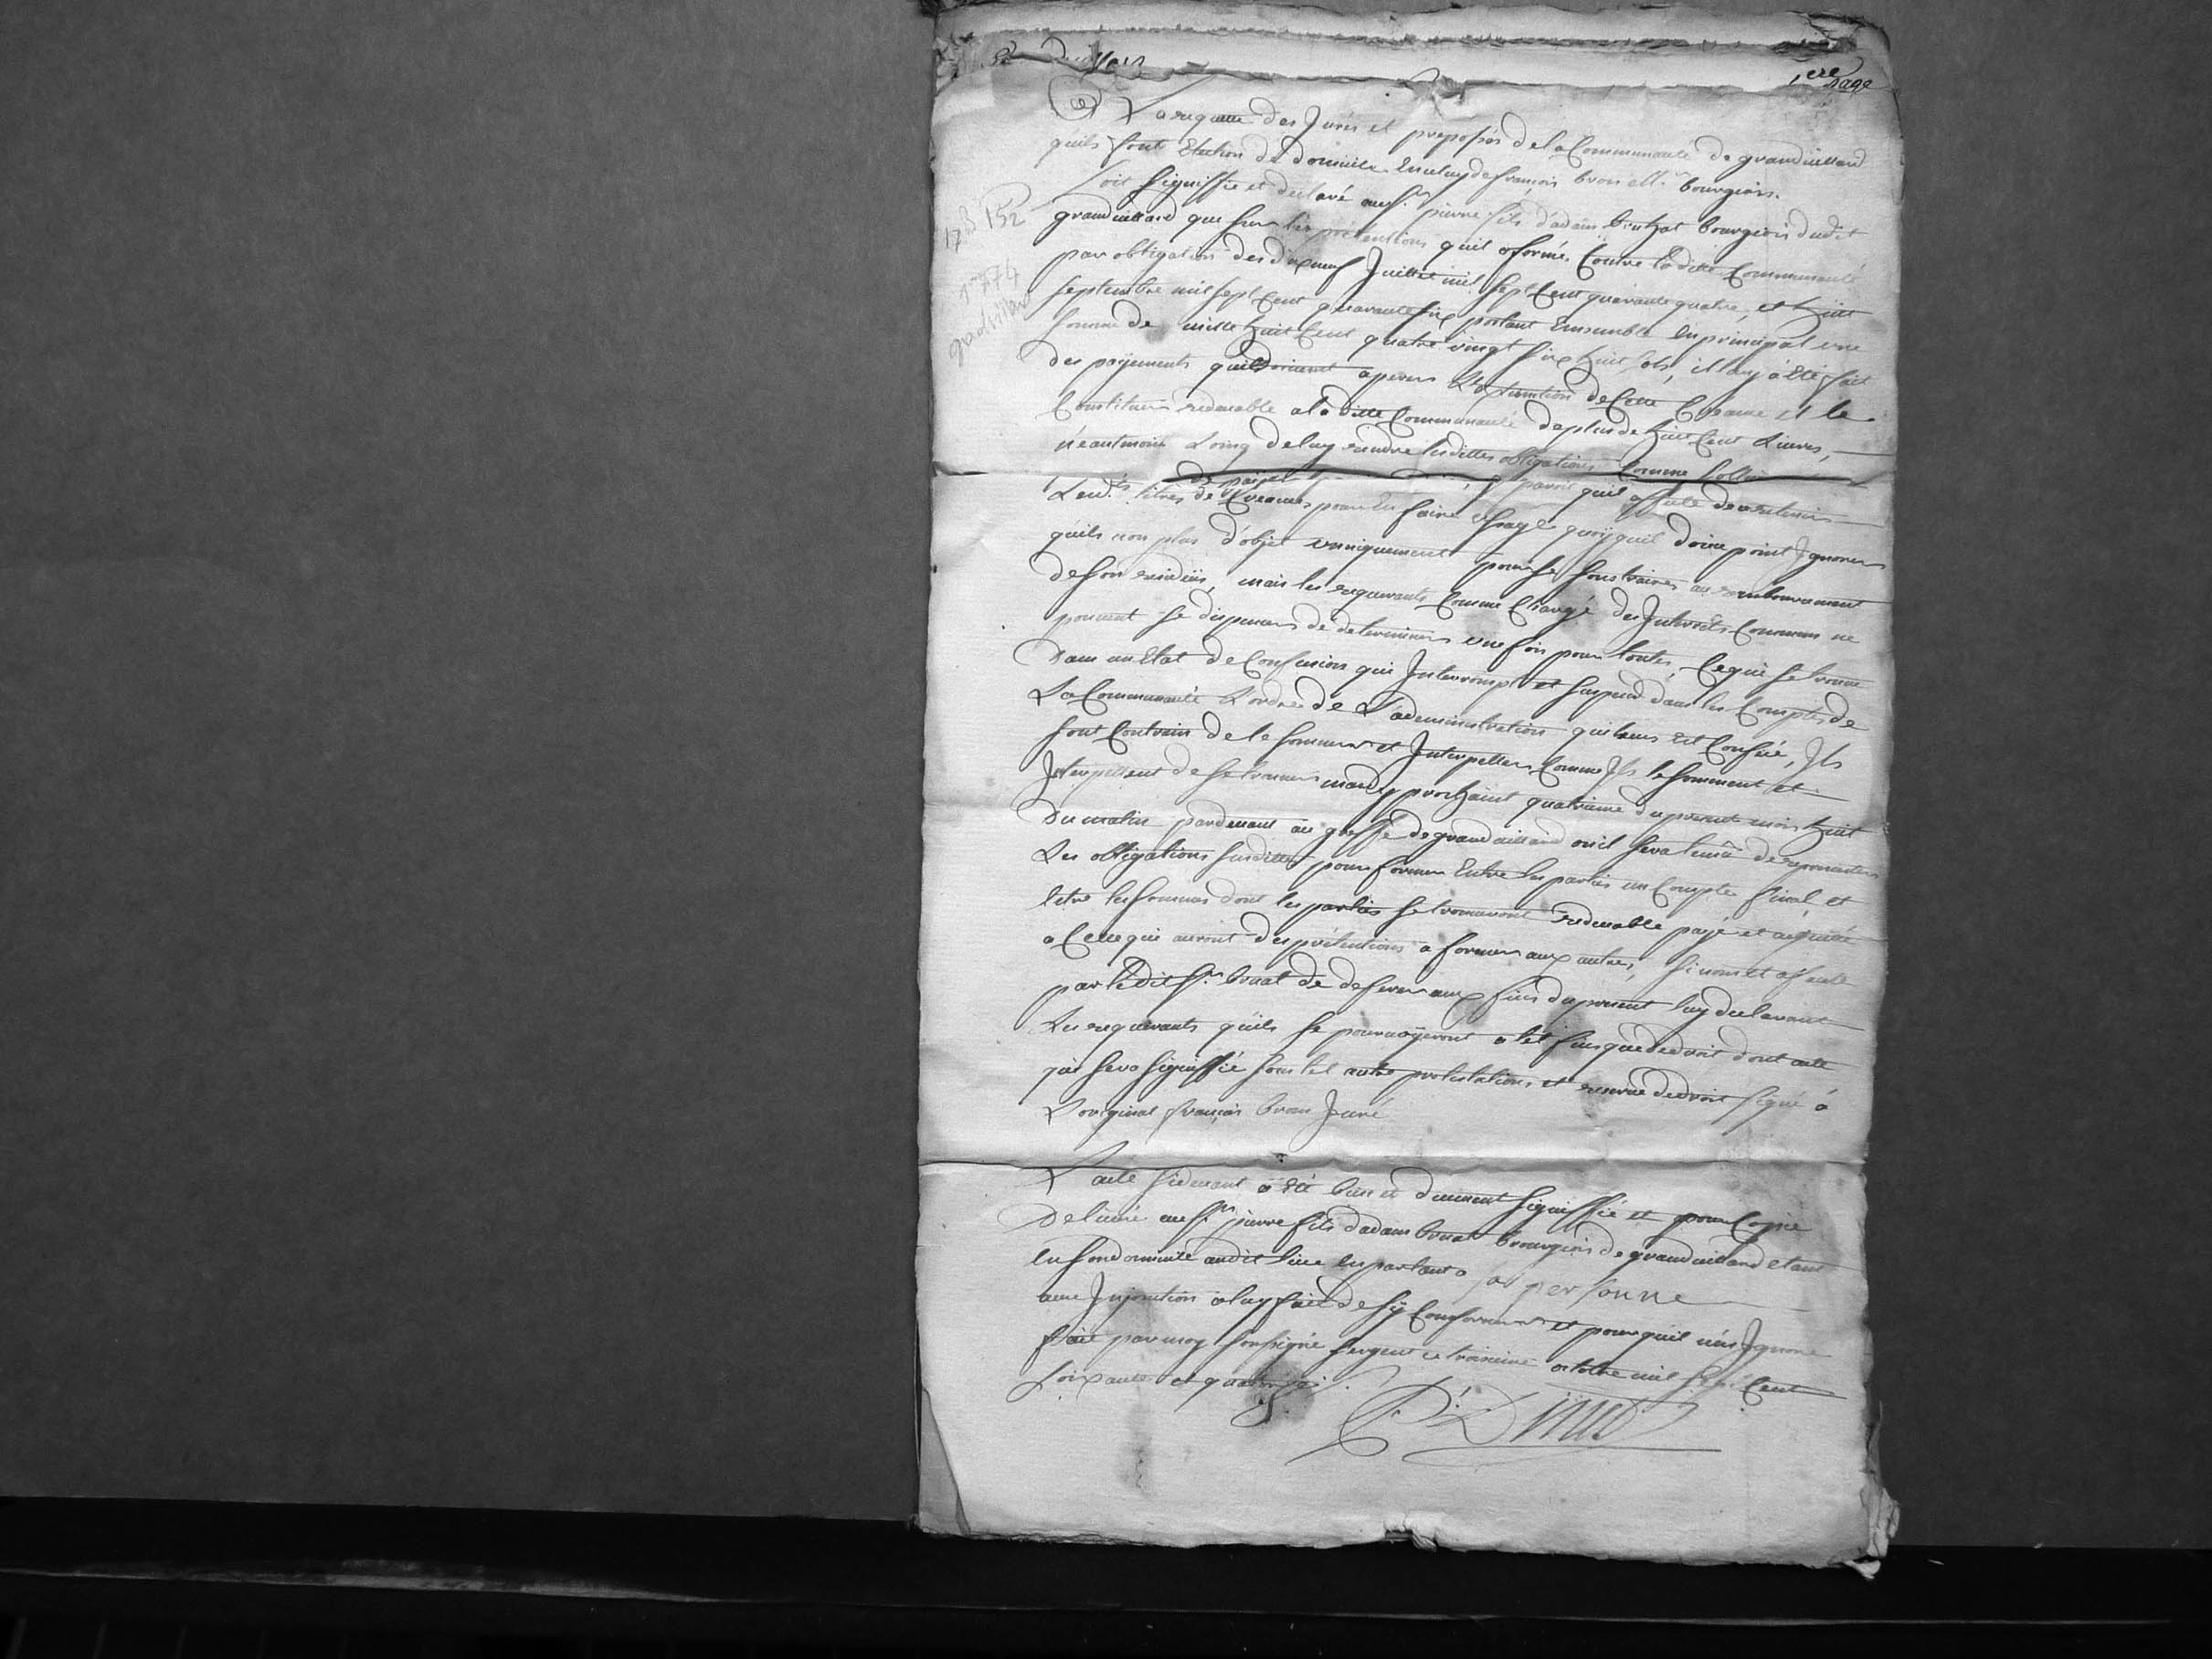 1ere page
A La requette des Jurés et preposés de la Communauté de grandvillard
qu'ils font Election de domicile En celuy de françois bron bourgeois
Soit signiffié et declaré au Sr pierre fils d'adam bruhat bourgeois dudit
grandvillard que sur les prétentions quil a formé Contre ladite Communauté
par obligation des dix neuf Juillet mil sept Cent quarante quatre, et huit
septembre mil sept Cent quarante six portant Ensemble En principal une
somme de mille huit Cent quatre vingt six huit sols, il luy a été fait
des payements quils doivent operer L'Extinction de Cette Creance et le
Constituer redevable a la ditte Communauté de plus de huit Cent Livres,
néantmoins Loing de luy rendre lesdittes obligations Comme
paroit quil affecte de retenir
Lesdts titres de Creances pour En faire Usage quoyquil doive point Ignorer
qu'ils non plus d'objet uniquement pour se soustraire au remboursement
de son residüs, mais les requerants Comme Chargé des Interrets Commun ne
pouvant se dispenser de determiner une fois pour toutes, Ce qui se trouve
Dans un Etat de Confusion qui Interrompt et suspend dans les Comptes de
La Communauté L'ordre de L'administration qui leurs Est Confiée, Ils
sont Contrains de le sommer et Interpeller Comme Ils le somment et
Interpellent de se trouver mardy prochaint quatrieme du present mois huit
Du matin pardevant au greffe de grandvillard ou il sera tenu de representer
Les obligations susdittes pour former Entre les parties un Compte final et
Etre les sommes dont les parties se trouveront redevable payé et acquitté
a Celle qui auront des prétentions a former aux autres, sinon et a faute
par le dit Sr bruat de deferer aux fins du present luy declarant
Les requerants quils se pourvoyeront a tel fins que de droit dont acte
qui sera signiffié sous tel autre protestations et reserve de droit signé a
L'original françois bron Juré
L'acte sidevant a été bien et duement signiffié et pour Copie
Delivré au Sr pierre fils d'adam bruat bourgeois de grandvillard etant
en son domicile audit lieu en parlant a sa personne
avec Injonction a luy fait de sÿ Conformer et pour qu'il n'en Ignore
fait par moy soussigné sergent ce troisieme octobre mil sept Cent
soixante et quatorze
17B 152
1774
grandvillard